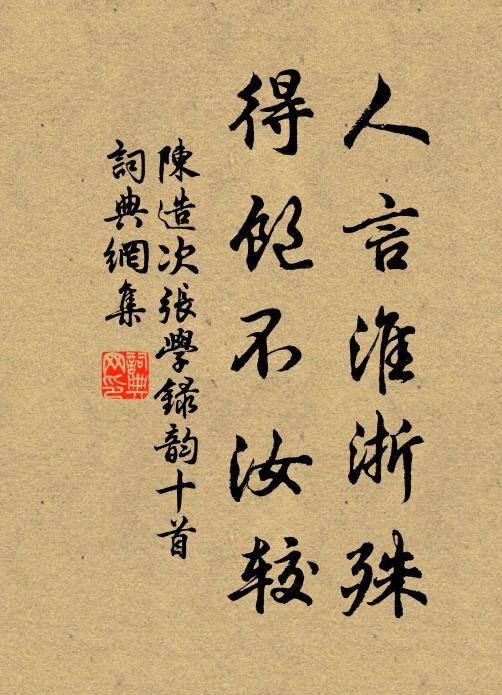 人言淮浙殊
得飽不汝较
陳造次張學録韵十首
詞典網集
詞典
网印